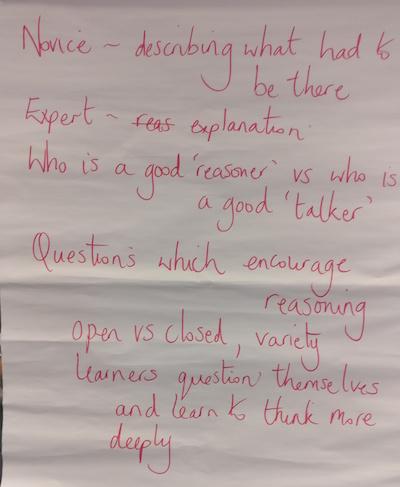 Novice ~ describing what had to
be there
Expert ~ reas explanation
Who is a good 'reasoner' vs who is
a good 'talker'
Questions which encourage
reasoning
open vs closed, variety
learners question themselves
and learn to think more
deeply